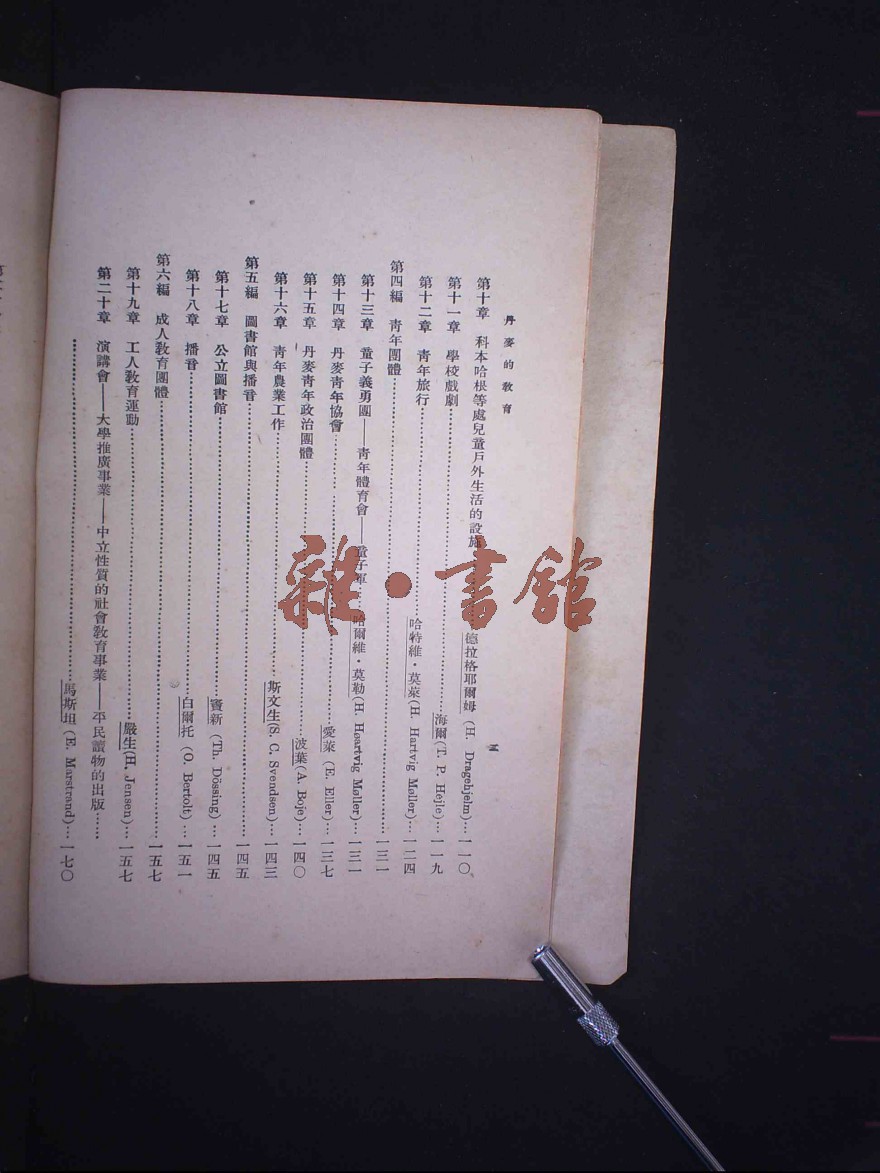 丹麥的教育
第十章 科本哈根等處兒童戶外生活的設施 德拉格耶爾姆 (H. Dragehjelm)… 一一〇
第十一章 學校戲劇……海爾(T. P. Hejle)… 一一九
第十二章 青年旅行……哈特維·莫萊(H. Hartvig Møller)… 一二四
第四編 青年團體…… 一三一
第十三章 童子義勇團——青年體育會——童子軍 哈爾維·莫勒(H. Høartvig Møller)… 一三一
第十四章 丹麥青年協會……愛萊 (E. Eller)… 一三七
第十五章 丹麥青年政治團體……波葉(A. Boje)… 一四〇
第十六章 青年農業工作……斯文生(S. C. Svendsen)… 一四三
第五編 圖書館與播音…… 一四五
第十七章 公立圖書館……竇新 (Th. Dössing)… 一四五
第十八章 播音……白爾托 (O. Bertolt)… 一五一
第六編 成人教育團體…… 一五七
第十九章 工人教育運動……嚴生(H. Jensen)… 一五七
第二十章 演講會——大學推廣事業——中立性質的社會教育事業——平民讀物的出版……
……馬斯坦 (E. Marstrand)… 一七〇
雜·書館